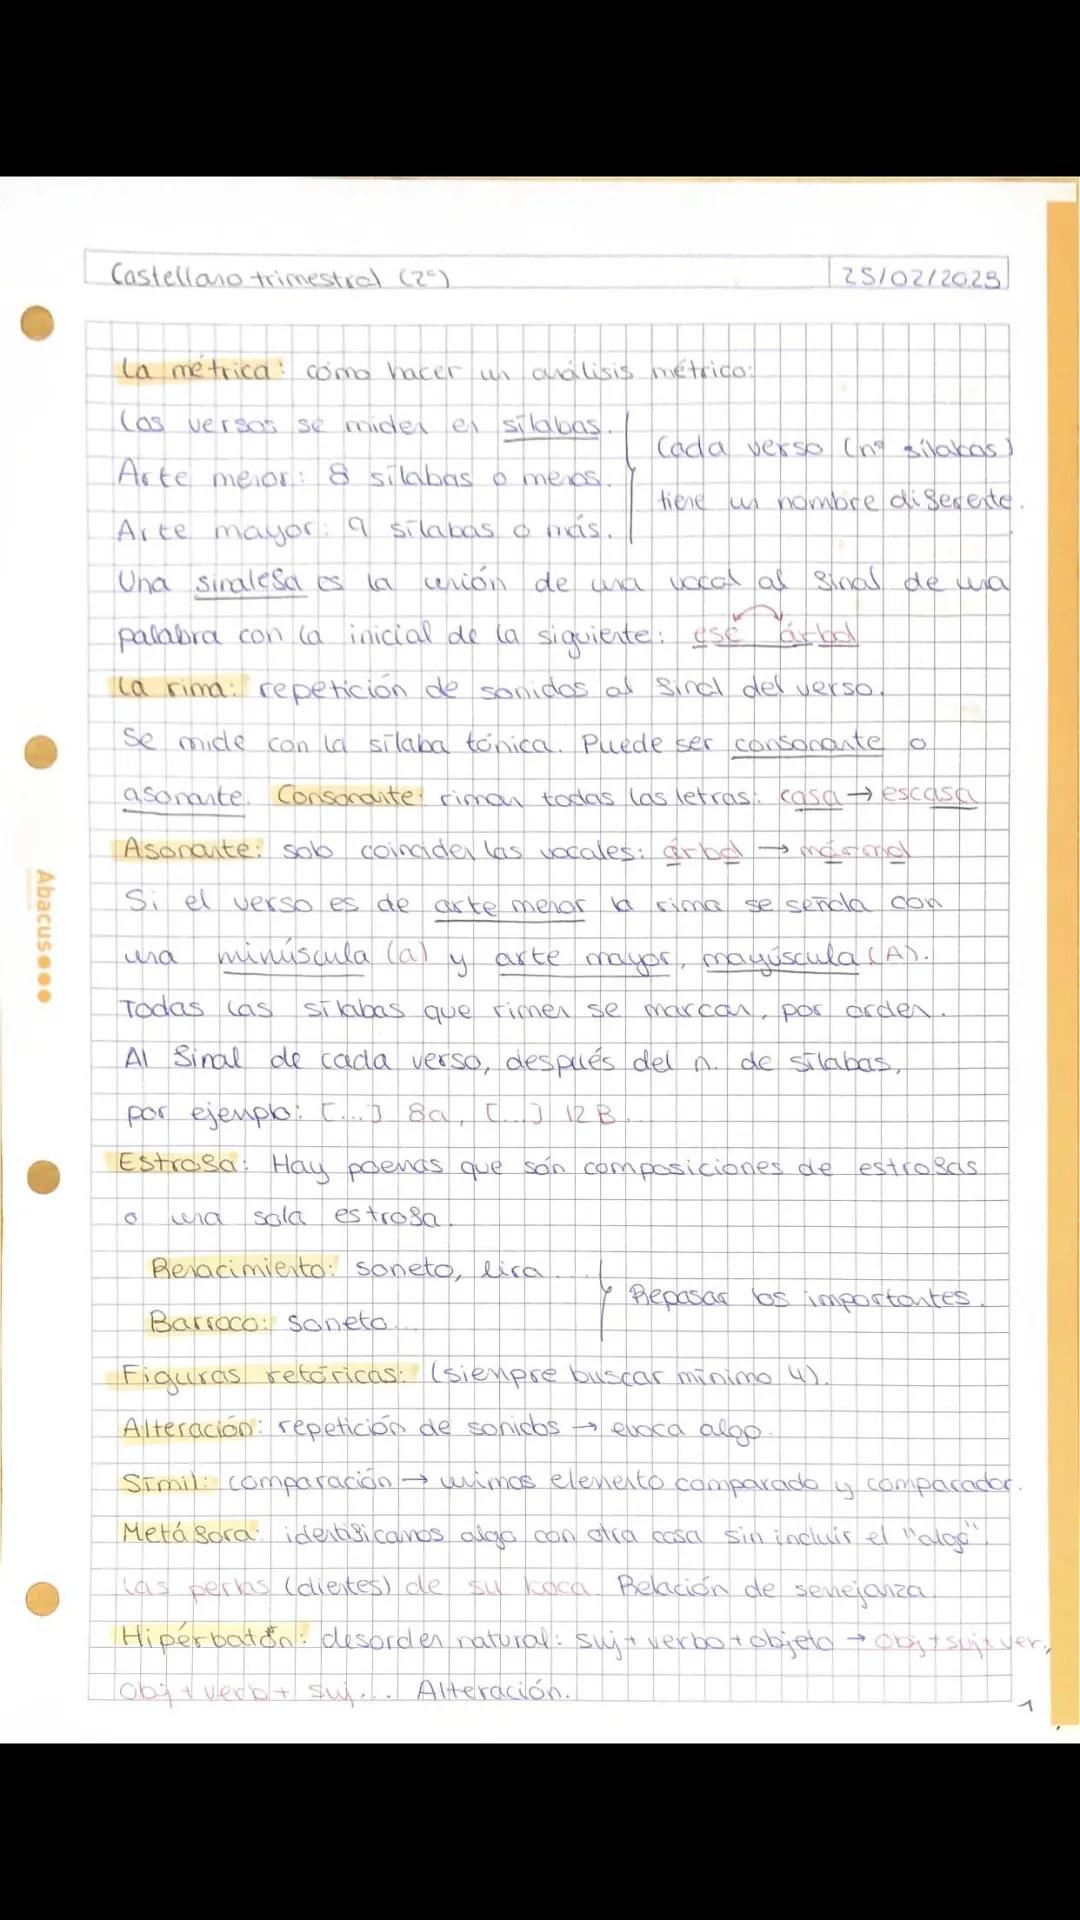 Castellano trimestral (2º)
25/02/2023
La métrica: cómo hacer un análisis métrico:
Los versos se miden en sílabas.
Arte menor: 8 sílabas o menos.
Arte mayor: 9 sílabas o más.
Cada verso (nº sílabas)
tiene un nombre diferente.
Una sinalefa es la unión de una vocal al final de una
palabra con la inicial de la siguiente: ese árbol
La rima: repetición de sonidos al final del verso.
Se mide con la sílaba tónica. Puede ser consonante o
asonante. Consonante: riman todas las letras: casa → escasa
Asonante: solo coinciden las vocales: árbol → mármol
Si el verso es de arte menor la rima se señala con
una minúscula (a) y arte mayor, mayúscula (A).
Todas las sílabas que rimen se marcan, por orden.
Al final de cada verso, después del n. de sílabas,
por ejemplo: [...] 8a, [...] 12B.
Estrofa: Hay poemas que son composiciones de estrofas
o una sola estrofa.
Renacimiento: soneto, lira...
Barroco: soneto...
Repasar los importantes.
Figuras retóricas: (siempre buscar mínimo 4).
Alteración: repetición de sonidos → evoca algo.
Símil: comparación → unimos elemento comparado y comparador.
Metáfora: identificamos algo con otra cosa sin incluir el "algo".
Las perlas (dientes) de su boca. Relación de semejanza.
Hipérbatón: desorden natural: suj + verbo + objeto → obj + suj + ver,
obj + verb + suj... Alteración.
1
Abacus